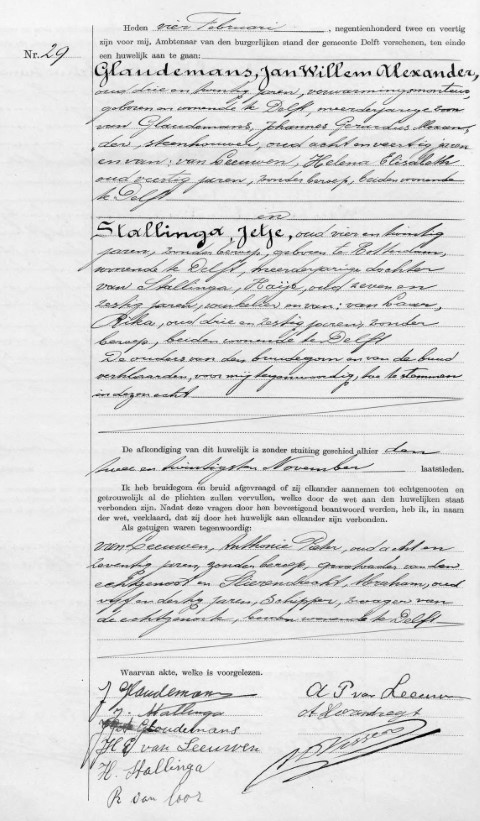 Heden vier Februari, negentienhonderd twee en veertig
zijn voor mij, Ambtenaar van den burgerlijken stand der gemeente Delft verschenen, ten einde
een huwelijk aan te gaan:
Nr. 29
Glaudemans, Jan Willem Alexander,
oud drie en twintig jaren, verwarmingsmonteur,
geboren en wonende te Delft, meerderjarige zoon
van Glaudemans, Johannes Gerardus Alexan-
der, steenhouwer, oud acht en veertig jaren
en van: van Leeuwen, Helena Elizabeth
oud veertig jaren, zonder beroep, beiden wonende
te Delft
en
Stallinga, Jetje, oud vier en twintig
jaren, zonder beroep, geboren te Rotterdam,
wonende te Delft, meerderjarige dochter
van Stallinga, Haije, oud zeven en
zestig jaren, winkelier en van: van Loor,
Rika, oud drie en zestig jaren, zonder
beroep, beiden wonende te Delft
De ouders van den bruidegom en van de bruid
verklaarden, voor mij tegenwoordig, toe te stemmen
in dezen echt
De afkondiging van dit huwelijk is zonder stuiting geschied alhier den
twee en twintigsten November laatstleden.
Ik heb bruidegom en bruid afgevraagd of zij elkander aannemen tot echtgenooten en
getrouwelijk al de plichten zullen vervullen, welke door de wet aan den huwelijken staat
verbonden zijn. Nadat deze vragen door hen bevestigend beantwoord werden, heb ik, in naam
der wet, verklaard, dat zij door het huwelijk aan elkander zijn verbonden.
Als getuigen waren tegenwoordig:
van Leeuwen, Anthonie Pieter, oud acht en
zeventig jaren, zonder beroep, grootvader van den
echtgenoot en Abraham, oud
vijf en dertig jaren, schipper, zwager van
de echtgenoote, beiden wonende te Delft
Waarvan akte, welke is voorgelezen.
J Glaudemans
J. Stallinga
Glaudemans
H E van Leeuwen
H. Stallinga
R van Loor
A P van Leeuwen
A